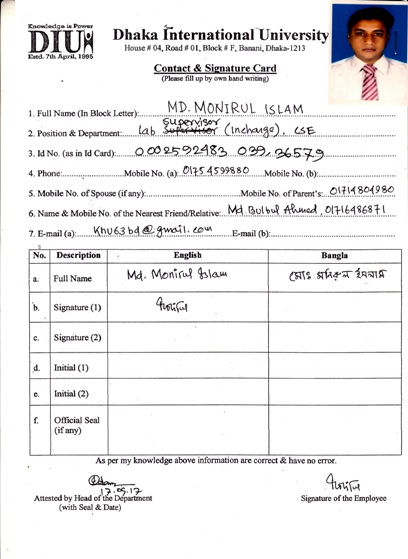 Knowledge is Power
DIU
Estd. 7th April, 1995
Dhaka International University
House # 04, Road # 01, Block # F, Banani, Dhaka-1213
Contact & Signature Card
(Please fill up by own hand writing)
1. Full Name (In Block Letter): MD. MONIRUL ISLAM
Supervisor
2. Position & Department: Lab (Incharge), CSE
3. Id No. (as in Id Card): 0002592483 039, 36579
4. Phone: Mobile No. (a): 01754599880 Mobile No. (b):
5. Mobile No. of Spouse (if any): Mobile No. of Parent's: 01714804980
6. Name & Mobile No. of the Nearest Friend/Relative: Md. Bulbul Ahmed, 01716486871
7. E-mail (a): khu63bd@gmail.com E-mail (b):
No. Description English Bangla
a. Full Name Md. Monirul Islam মোঃ মনিরুল ইসলাম
b. Signature (1) মনিরুল
c. Signature (2)
d. Initial (1)
e. Initial (2)
f. Official Seal
(if any)
As per my knowledge above information are correct & have no error.
17.09.17 মনিরুল
Attested by Head of the Department Signature of the Employee
(with Seal & Date)